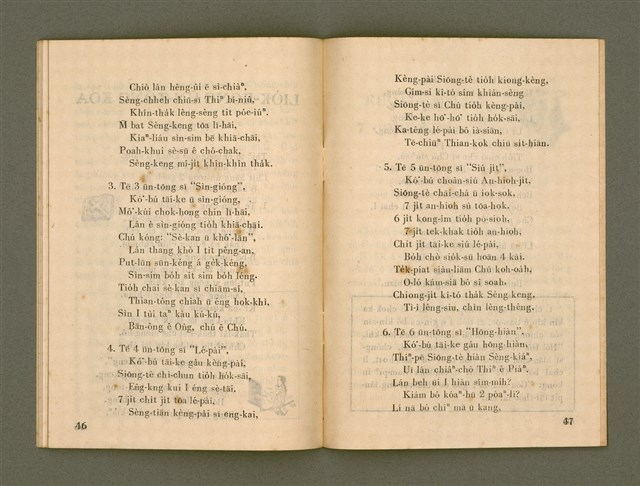 Chiò lán hêng-ûi ē sī-chiâⁿ,
Sèng-chheh chiū-sī Thiⁿ bí-niû,
Khîn-thák lêng-sèng tit póe-iúⁿ.
M̄ bat Sèng-keng tōa lī-hāi,
Kiaⁿ-liáu sin-sim bē khiā-chāi,
Poah-khui sè-sū ē chò-chak,
Sèng-keng mī-ji̍t khîn-khîn tha̍k.
3. Tē 3 ūn-tōng sī "Sìn-gióng",
Kó͘-bú tāi-ke ū sìn-gióng,
Mô͘-kúi chok-hong chin lī-hāi,
Lán ê sìn-gióng tio̍h khiā-chāi.
Chú kóng: "Sè-kan ū khó͘-lān",
Lán thang khò I tit pêng-an.
Put-lūn sūn-kéng á ge̍k-kéng,
Sìn-sim bōh sit sim bōh léng.
Tio̍h chai sè-kan sī chiām-sî,
Thian-tông chiah ū éng hok-khì.
Sìn I tùi taⁿ kàu kù-kú,
Bān-ông ê Ông, chú ê Chú.
4. Tē 4 ūn-tōng sī "Lé-pài",
Kó͘-bú tāi-ke gâu kèng-pài,
Siōng-tè chì-chun tio̍h ho̍k-sāi,
Eng-kng kui I éng sè-tāi.
7 ji̍t chi̍t ji̍t tōa lé-pài,
Sèng-tiān kèng-pài sī eng-kai,
46
Kèng-pài Siōng-tè tio̍h kiong-kèng,
Gîm-si kî-tó sim khiân-sêng
Siōng-tè sī Chú tio̍h kèng-pài,
Ke-ke hō͘-hō͘ tio̍h ho̍k-sāi,
Ka-têng lé-pài bô iá-siān,
Tē-chiūⁿ Thian-kok chiū si̍t-hiān.
5. Tē 5 ūn-tōng sī "Siú ji̍t",
Kó͘-bú choân-siú An-hioh-ji̍t.
Siōng-tè chāi-chá ū iok-sok.
7 ji̍t an-hioh sú tōa-hok.
6 ji̍t kong-îm tio̍h pó-sioh.
7 ji̍t tek-khak tio̍h an-hioh,
Chit ji̍t tāi-ke siú lé-pài.
Bōh chò sio̍k-sū hoān 4 kài.
Te̍k-piat siàu-liām Chú koh-oa̍h,
O-ló kám-siā bô sî soah.
Chiong-ji̍t kî-tó tha̍k Sèng-keng.
Ti-ì lêng-siu, chin lêng-thêng.
6. Tē 6 ūn-tōng sī "Hōng-hiàn",
Kó͘-bú tāi-ke gâu hōng-hiàn,
Thiⁿ-pē Siōng-tè hiàn Sèng-kiáⁿ,
Ūi lán chiâⁿ-chò Thiⁿ ê Piáⁿ.
Lán beh ūi I hiàn sím-mih?
Kiám bô kóaⁿ-hū 2 póaⁿ-lî?
Lí nā bô chîⁿ mā ū kang,
47